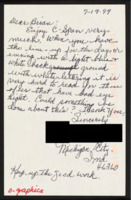 7-19-99
Dear Brian:
Enjoy C-Span very
much. When you have
the line-up for the day or
evening with a light blue &
white background
with white lettering it is
very hard to read for those
of us that have bad eye
sight. Could something be
done about this? Thank you.
Sincerely
Michigan City,
Ind.
46360
Keep up the good work.
e-graphics